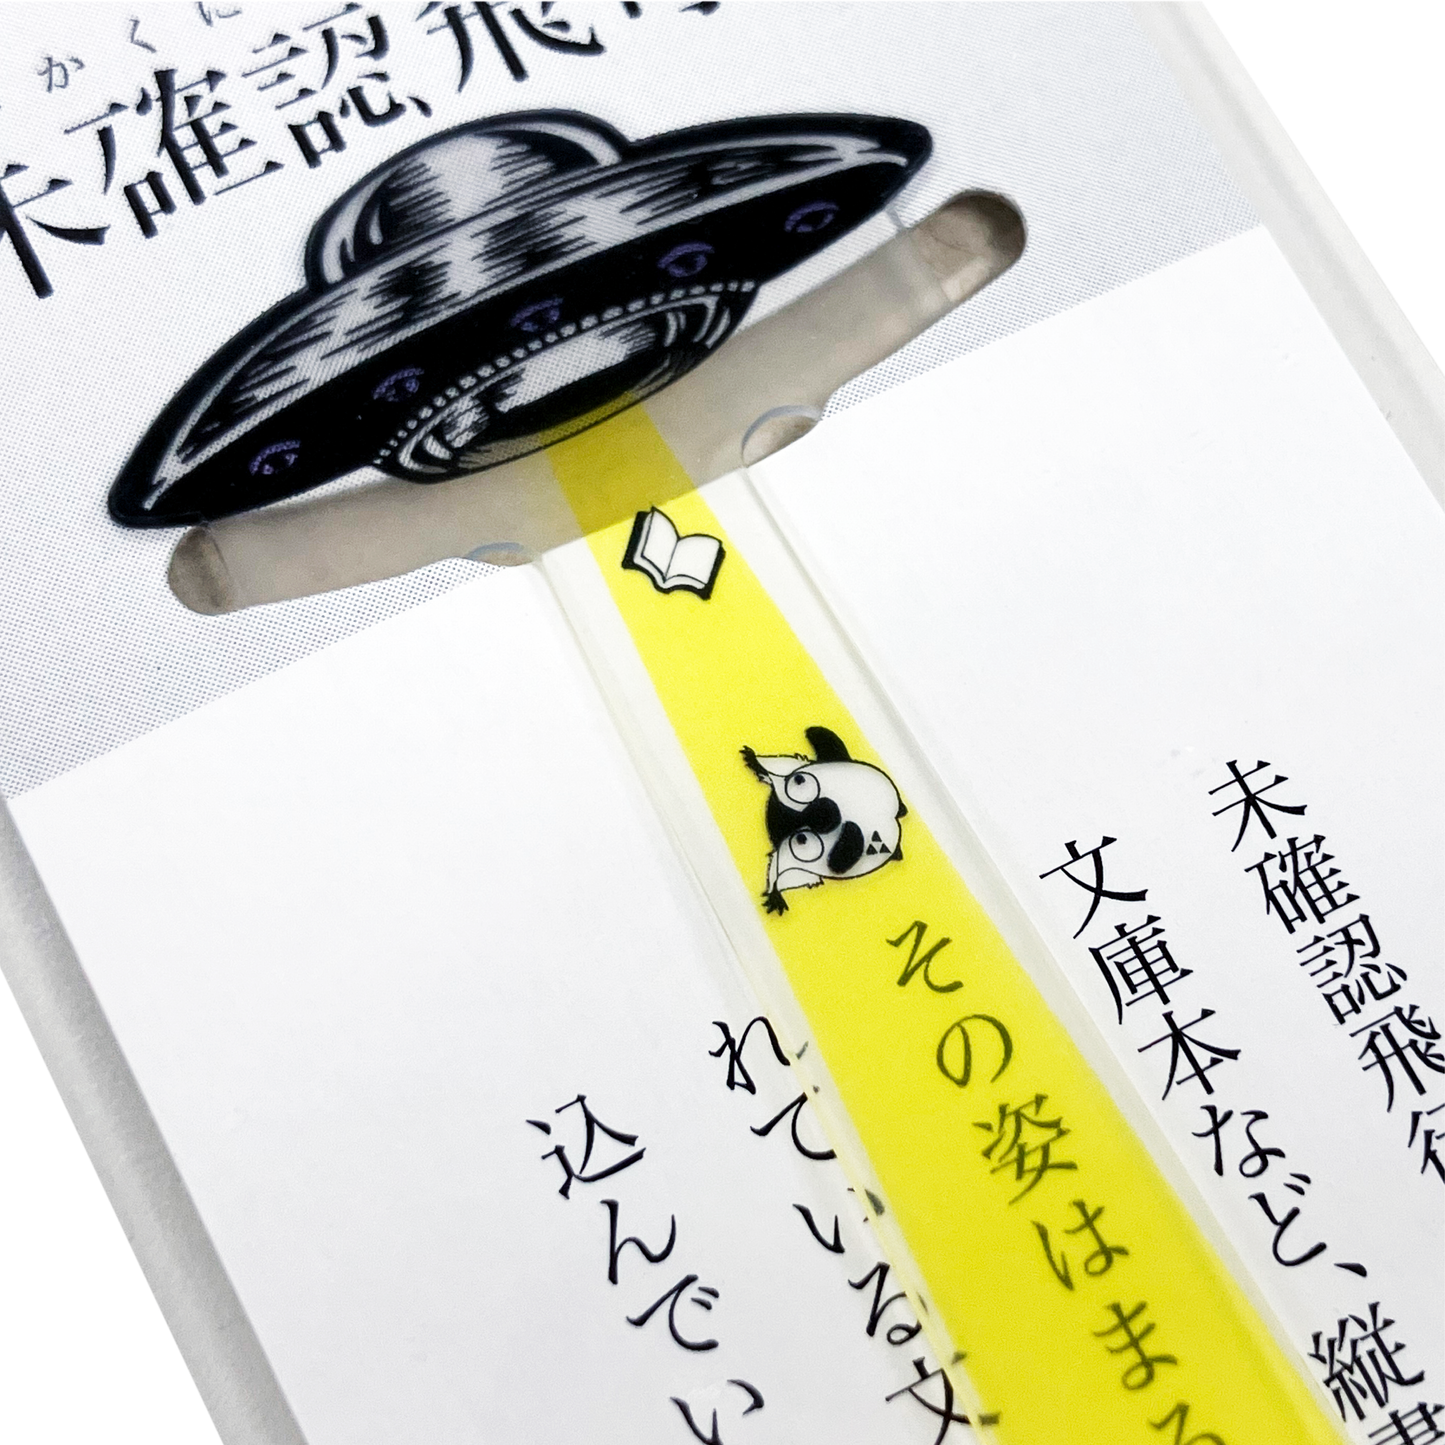 かくに
未確認飛
未確認飛行
文庫本など、縦書
その姿はまる
れている文
込んでい